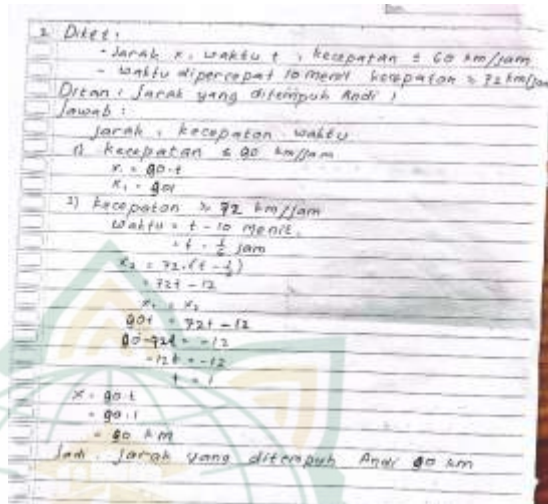 2 Diket :
- Jarak x, waktu t, kecepatan ≤ 60 km/jam
- waktu dipercepat 10 menit kecepatan ≥ 72 km/jam
Ditan : Jarak yang ditempuh Andi !
Jawab :
Jarak : kecepatan . waktu
1) kecepatan ≤ 90 km/jam
x₁ = 90.t
x₁ = 90t
2) kecepatan ≥ 72 km/jam
waktu = t - 10 menit
= t - 1/6 jam
x₂ = 72.(t - 1/6)
= 72t - 12
x₁ = x₂
90t = 72t - 12
90-72t = -12
-12t = -12
t = 1
x = 90.t
= 90.1
= 90 km
Jadi, Jarak yang ditempuh Andi 90 km